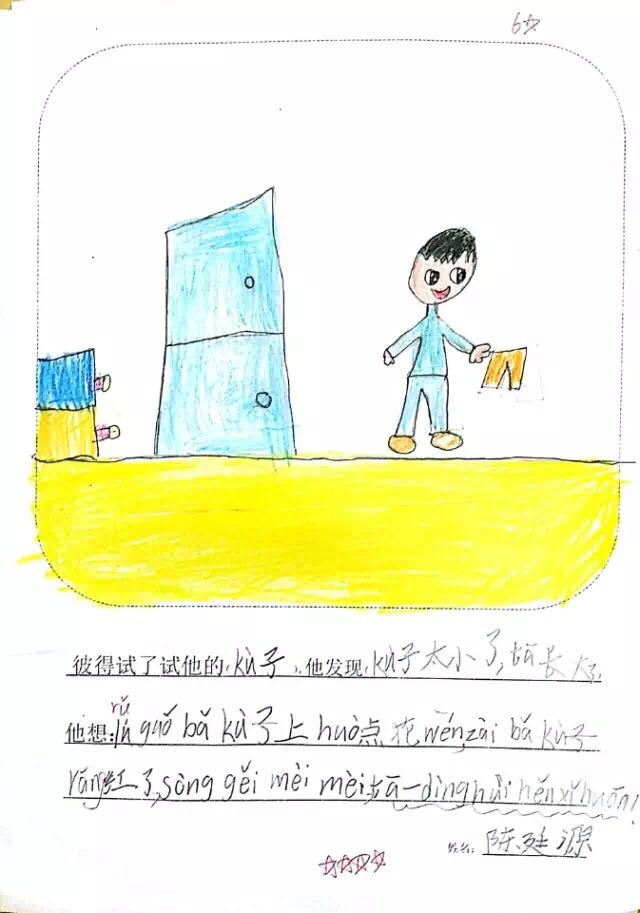 6☆
彼得试了试他的(kù子),他发现(kù子太小了,tā长大了,
rú
他想:lú guǒ bǎ kù子上 huò点花wén,zài bǎ kù子
rǎng红了,sòng gěi mèi mèi,tā一dìng huì hěn xǐ huān!
姓名:陈廷源
☆☆☆☆